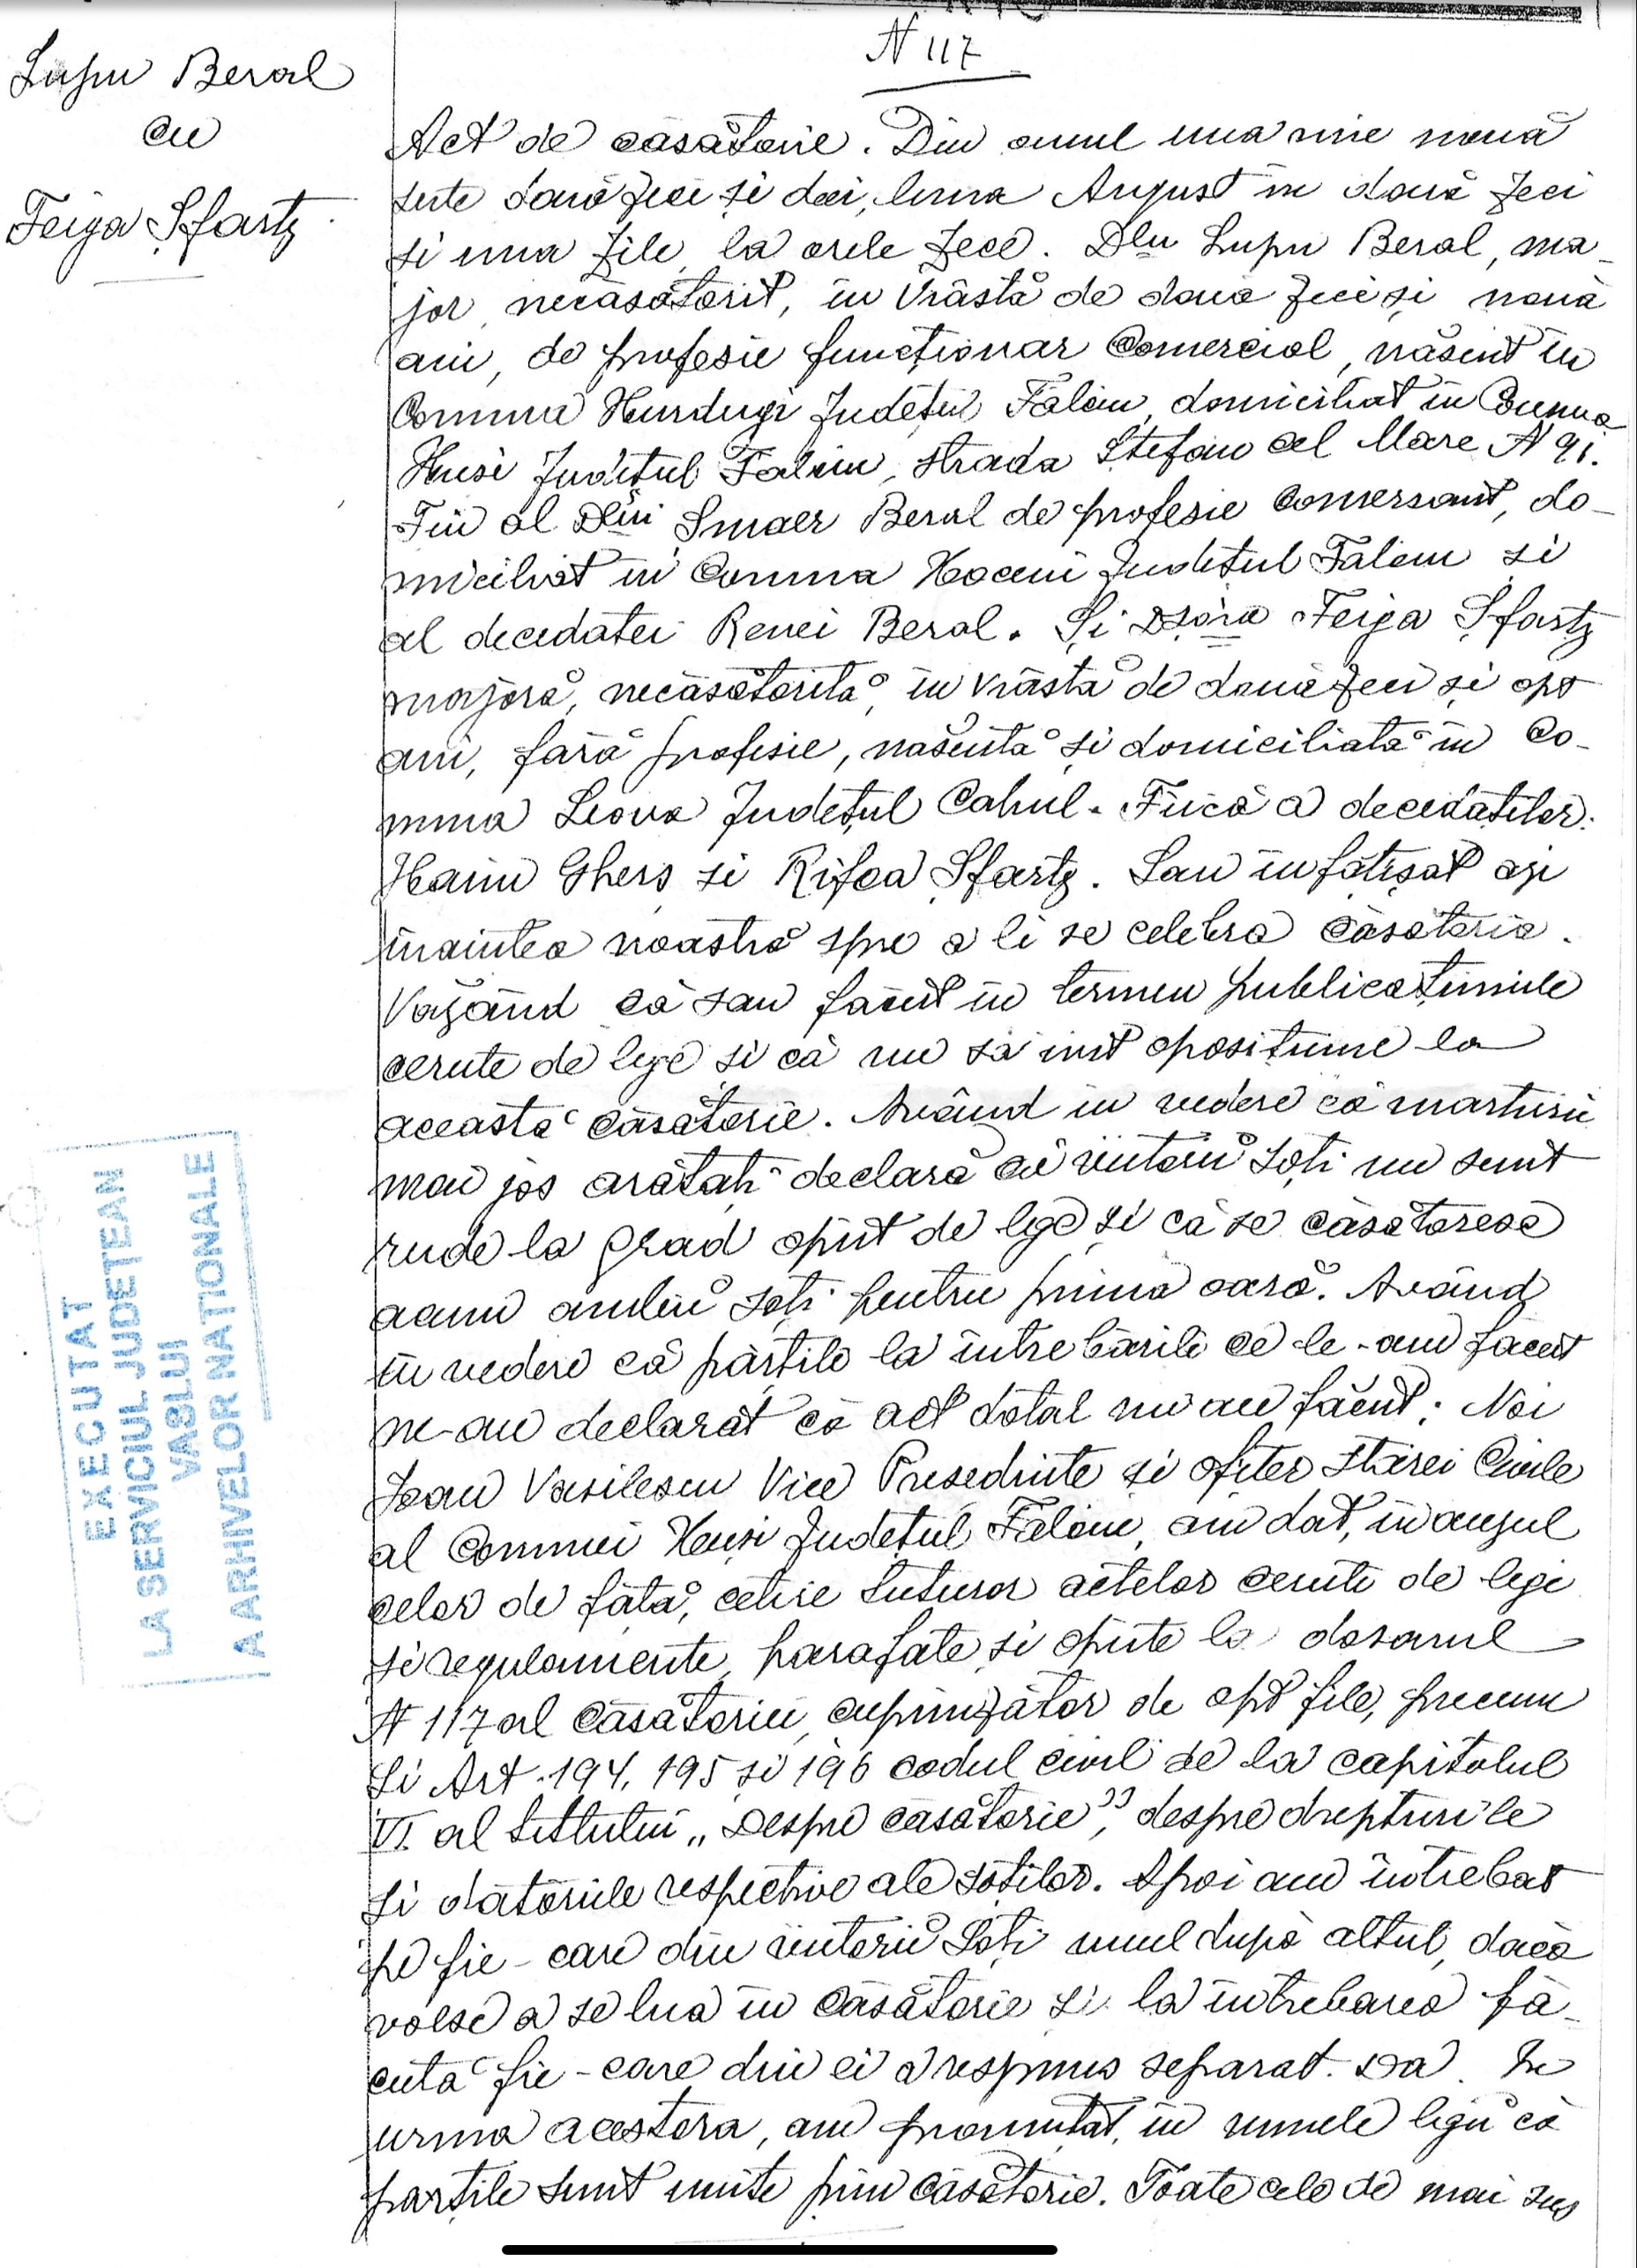 N 117
Lupu Beral
cu
Feiga Sfartz
Act de căsătorie. Din anul una mie nouă
sute două zeci și doi, luna August în două zeci
și una zile, la orele zece. Dlu Lupu Beral, ma-
jor, necăsătorit, în vrâstă de două zeci și nouă
ani, de profesie funcționar comercial, născut în
Comuna Hurdugi Județul Fălciu, domiciliat în Comuna
Huși Județul Fălciu, strada Ștefan cel Mare N 91.
Fiu al Dlui Smaer Beral de profesie comersant, do-
miciliat in Comuna Hoceni Județul Fălciu și
al decedatei Renei Beral. Și Dșora Feiga Sfartz
majoră, necăsătorită, în vrâstă de două zeci și opt
ani, fără profesie, născută și domiciliată în Co-
muna Leova Județul Cahul. Fiică a decedaților:
Haim Ghers și Rifca Sfartz. Sau înfățișat azi
înaintea noastră spre a li se celebra căsătoria.
Văzând că sau făcut în termen publicațiunile
cerute de lege și că nu să ivit oposițiune la
aceasta căsătorie. Având in vedere că marturii
mai jos arătați declară că viitorii soți nu sunt
rude la grad oprit de lege și că se căsătoresc
acum ambii soți pentru prima oară. Având
în vedere că părțile la întrebările ce le-am facut
ne-au declarat că act dotal nu au făcut; Noi
Ioan Vasilescu Vice Președinte și ofițer stărei Civile
al Comunei Huși Județul Fălciu, am dat, in auzul
celor de față, cetire tuturor actelor cerute de lege
și regulamente, parafate și oprite la dosarul
N 117 al căsătoriei, cuprinzător de opt file, precum
și Art. 194, 195 și 196 codul civil de la capitolul
VI al titlului „Despre căsătorie”, despre drepturile
și datoriile respective ale soților. Apoi am întrebat
pe fie-care din viitorii soți unul după altul, dacă
voesc a se lua în căsătorie și la întrebarea fă-
cută fie-care din ei a respuns separat. Da. În
urma acestora, am pronunțat, in numele legii că
parțile sunt unite prin căsătorie. Toate cele de mai sus
EXECUTAT
LA SERVICIUL JUDEȚEAN
VASLUI
A ARHIVELOR NATIONALE